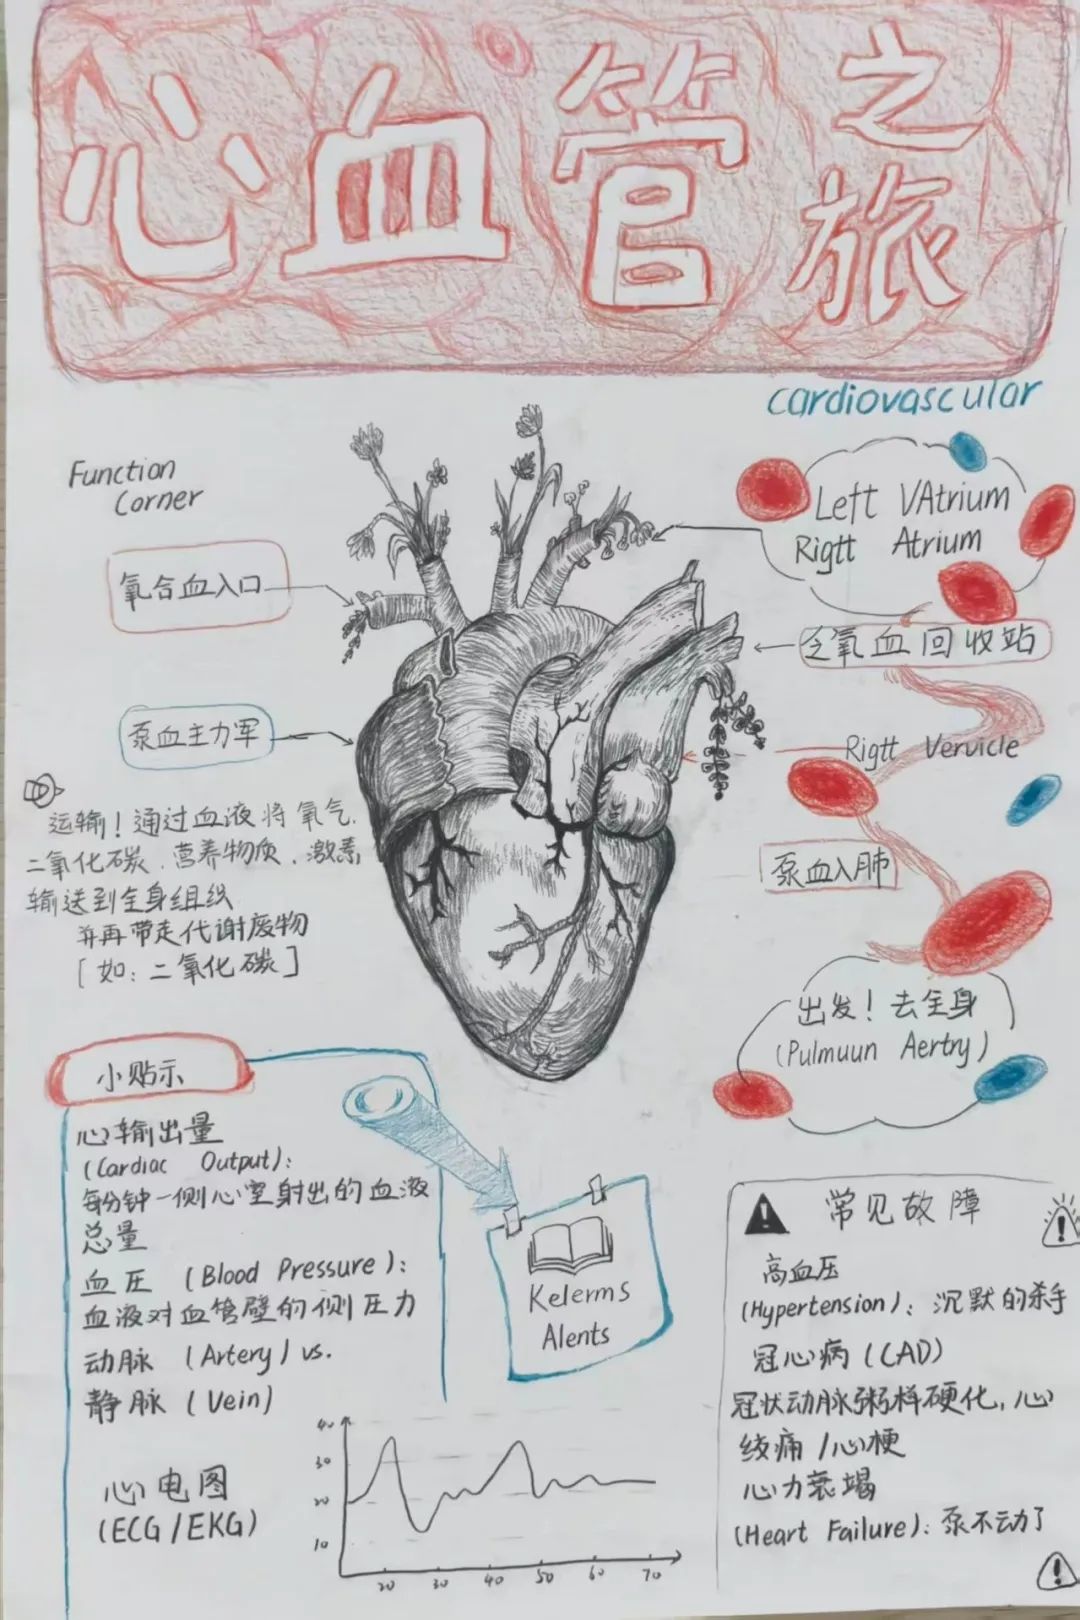 心血管之旅
cardiovascular
Function
Corner
氧合血入口
泵血主力军
Left VAtrium
Rigtt Atrium
乏氧血回收站
Rigtt Vervicle
泵血入肺
出发！去全身
(Pulmuun Aertry)
运输！通过血液将氧气.
二氧化碳.营养物质.激素
输送到全身组织
并再带走代谢废物
[如：二氧化碳]
小贴示
心输出量
(Cardiac Output)：
每分钟一侧心室射出的血液
总量
血压 (Blood Pressure)：
血液对血管壁的侧压力
动脉 (Artery) vs.
静脉 (Vein)
Kelerms
Alents
常见故障
高血压
(Hypertension)：沉默的杀手
冠心病 (CAD)
冠状动脉粥样硬化，心
绞痛/心梗
心力衰竭
(Heart Failure)：泵不动了
心电图
(ECG/EKG)
40
30
20
10
20 30 40 50 60 70